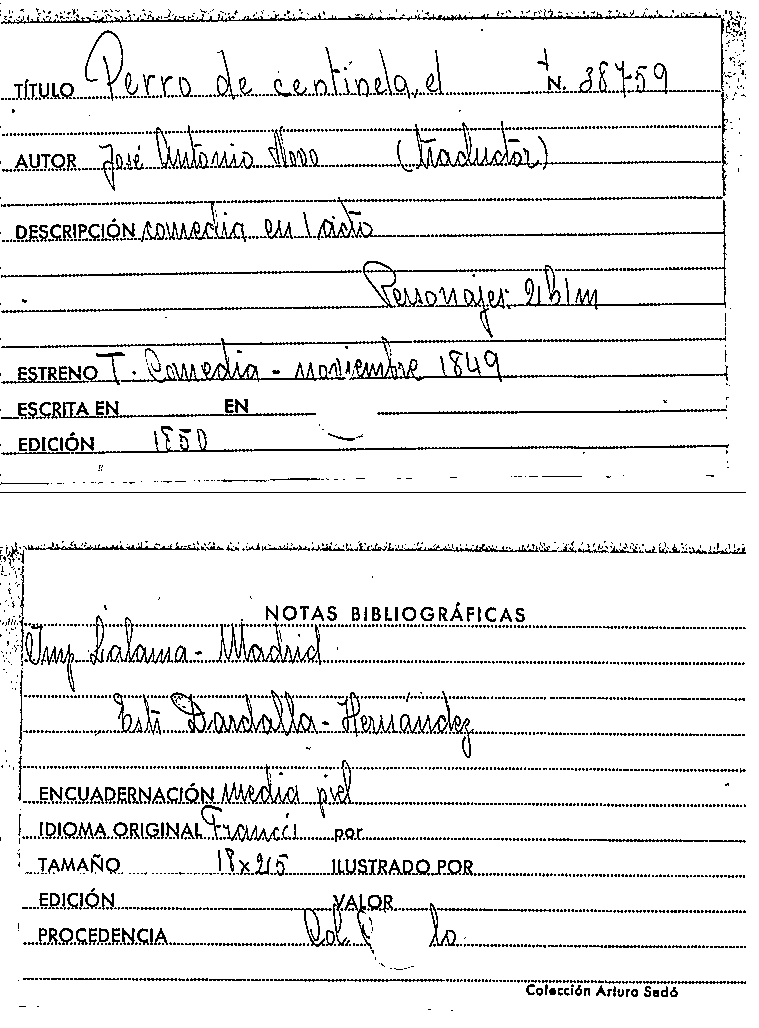 TÍTULO Perro de centinela, el N. 38759
AUTOR José Antonio Novo (traductor)
DESCRIPCIÓN comedia en 1 acto
Personajes: 2h 1m
ESTRENO T. Comedia - noviembre 1849
ESCRITA EN EN
EDICIÓN 1850
NOTAS BIBLIOGRÁFICAS
Imp Lalama - Madrid
Estr. Dardalla - Hernández
ENCUADERNACIÓN media piel
IDIOMA ORIGINAL Francés por
TAMAÑO ILUSTRADO POR
EDICIÓN VALOR
PROCEDENCIA Col.
Colección Arturo Sedó